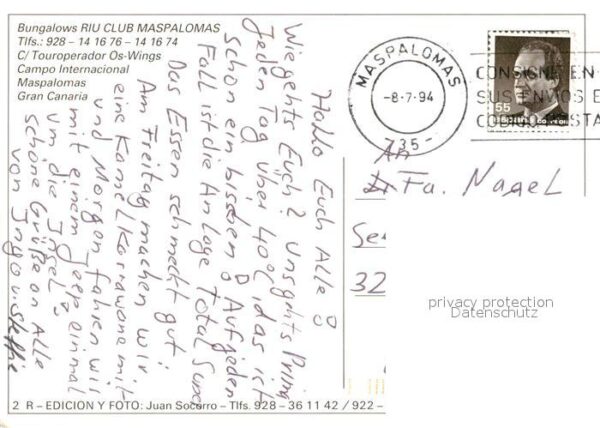 Bungalows RIU CLUB MASPALOMAS
Tlfs.: 928 - 14 16 76 - 14 16 74
C/ Touroperador Os-Wings
Campo Internacional
Maspalomas
Gran Canaria
MASPALOMAS
-8-7.94
735-
CONSIGNE EN
SUS ENVIOS E
CODIGO STA
55
Hallo Euch Alle
Wie gehts Euch? Uns gehts Prima
Jeden Tag über 40°C das ist
schön ein bissen Auf jeden
Fall ist die Anlage Total Super
Das Essen schmeckt gut
Am Freitag machen wir
eine Kamelkarawane mit
und Morgen fahren wir
mit einem Jeep einmal
um die Insel
schöne Grüße an Alle
von Ingo u.
An
Fa. Nagel
Se
32
privacy protection
Datenschutz
2 R - EDICION Y FOTO: Juan Socorro - Tlfs. 928 - 36 11 42 / 922 -